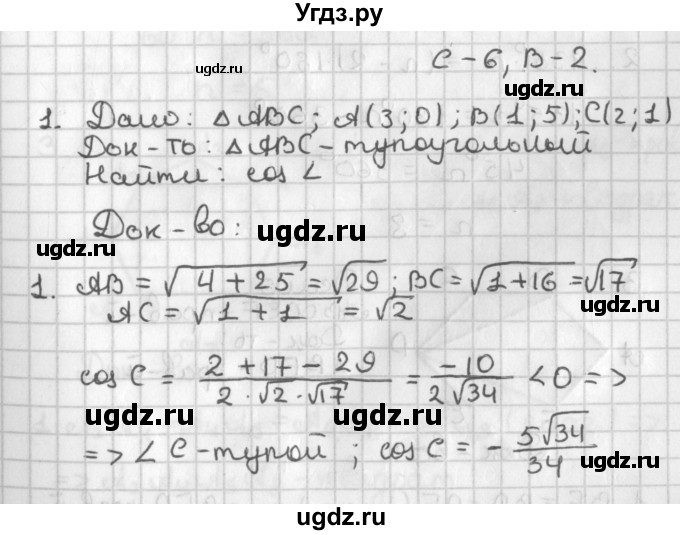 Угдз.ру
C-6, B-2.
ugdz.ru ugdz.ru
1. Дано: △ABC; A(3;0); B(1;5); C(2;1)
Док-ть: △ABC-тупоугольный
Найти: cos ∠
Док-во:
ugdz.ru ugdz.ru ugdz.ru
1. AB = √(4+25) = √29; BC = √(1+16) = √17
AC = √(1+1) = √2
ugdz.ru
cos C = (2+17-29)/(2·√2·√17) = -10/(2√34) < 0 =>
ugdz.ru ugdz.ru
=> ∠ C-тупой; cos C = - 5√34/34
ugdz.ru ugdz.ru
ugdz.ru